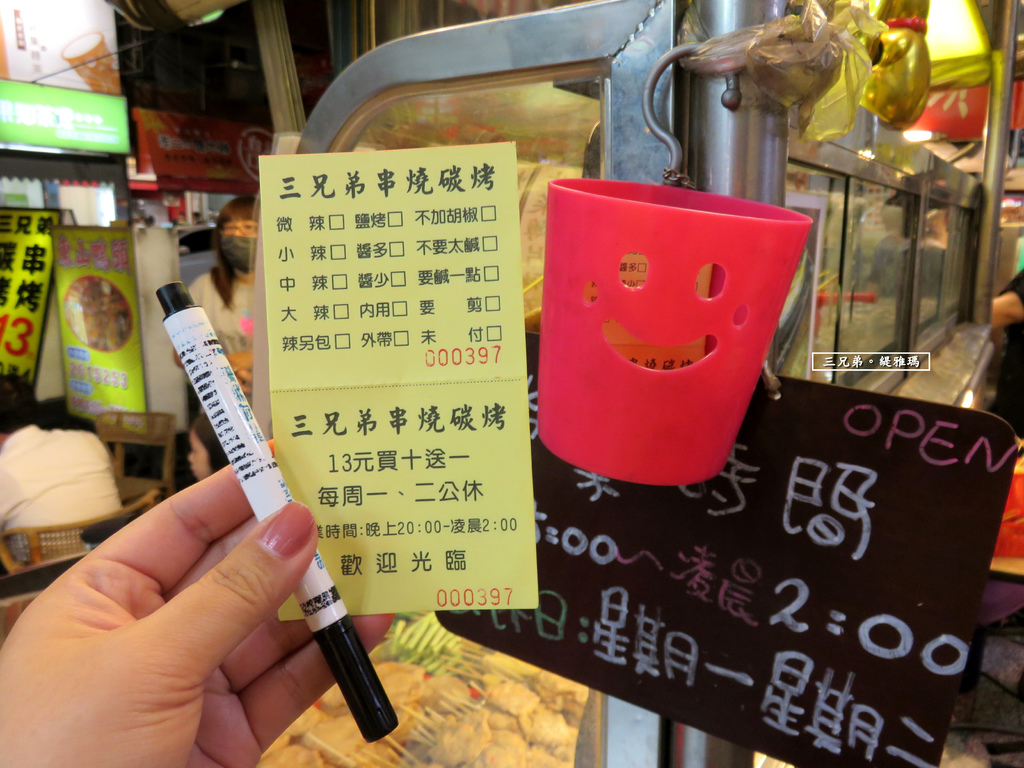 三兄弟串燒碳烤
微辣□ 鹽烤□ 不加胡椒□
小辣□ 醬多□ 不要太鹹□
中辣□ 醬少□ 要鹹一點□
大辣□ 內用□ 要剪□
辣另包□ 外帶□ 未付□
000397
三兄弟串燒碳烤
13元買十送一
每周一、二公休
業時間:晚上20:00-凌晨2:00
歡迎光臨
000397
醬多□
三兄弟。緹雅瑪
OPEN
時間
5:00~凌晨2:00
休日:星期一星期二
碳串
烤烤
13